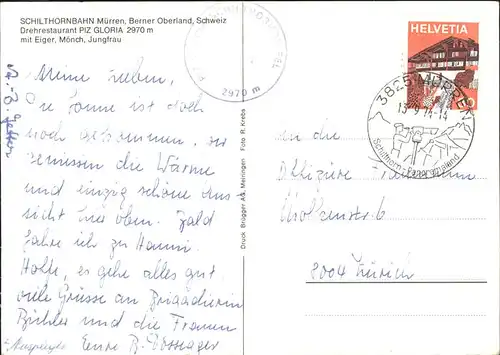 SCHILTHORNBAHN Mürren, Berner Oberland, Schweiz
Drehrestaurant PIZ GLORIA 2970 m
mit Eiger, Mönch, Jungfrau
Meine lieben,
Die Sonne ist doch
noch gekommen, wir
geniessen die Wärme
und einzig schöne Aus-
sicht hier oben. Bald
fahre ich zu Hanni.
Hoffe, es gehe alles gut,
viele Grüsse an Brigadierin
Bühler und die Frauen
Eure B.
Druck Brügger AG, Meiringen Foto R. Krebs
2970 m
HELVETIA
3825 MÜRREN
Schilthorn - Panoramaland
An die
Offiziere
6
8004 Zürich